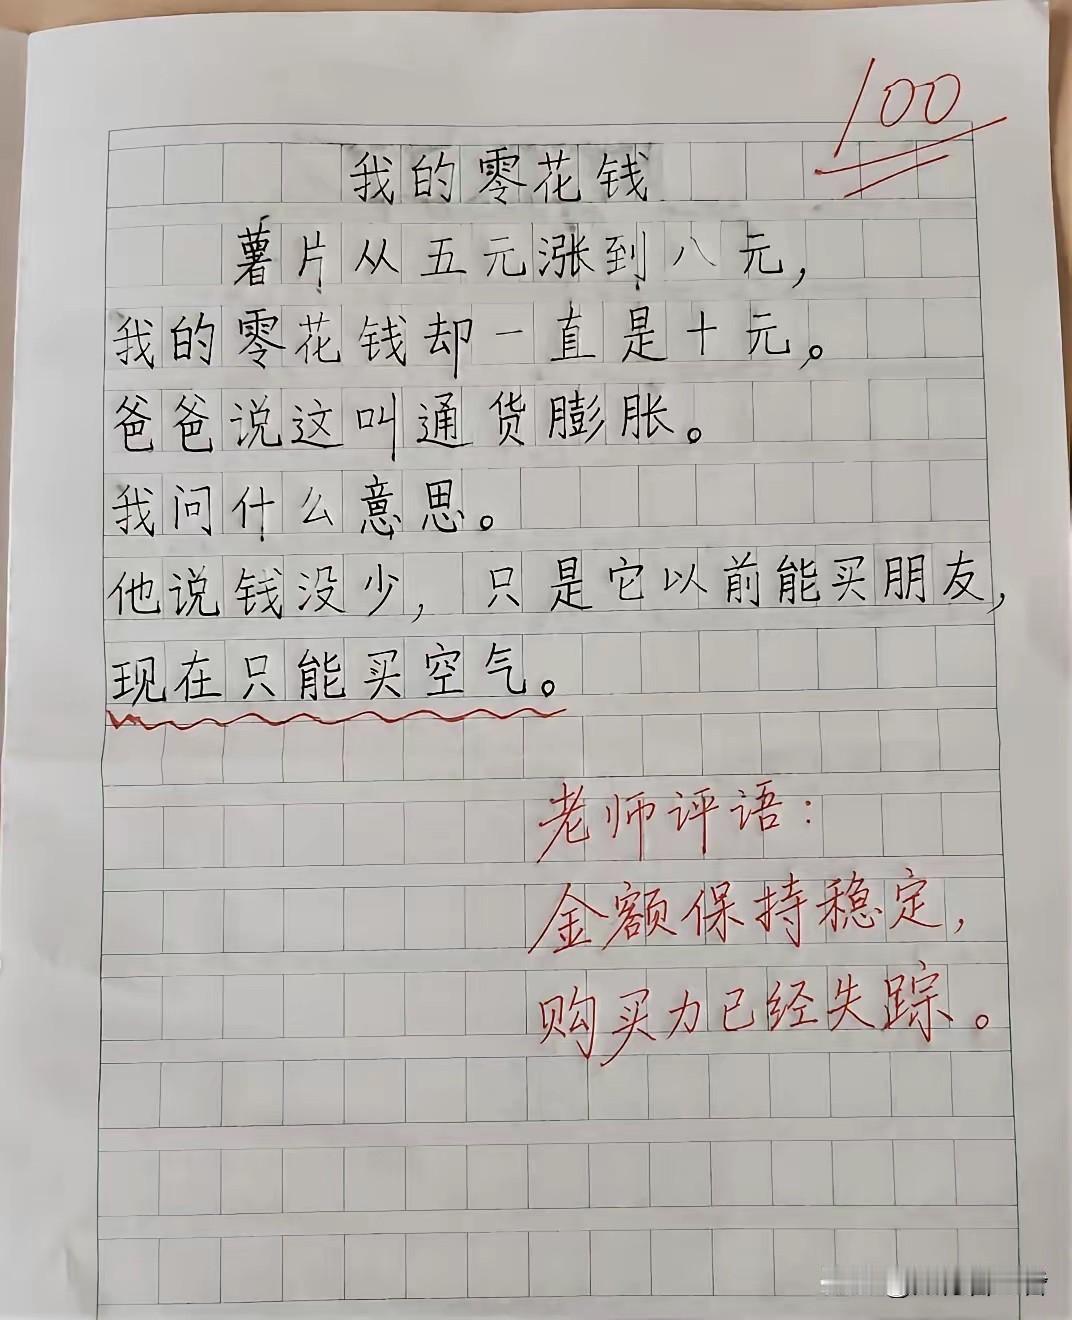 100
我的零花钱
薯片从五元涨到八元，
我的零花钱却一直是十元。
爸爸说这叫通货膨胀。
我问什么意思。
他说钱没少，只是它以前能买朋友，
现在只能买空气。
老师评语：
金额保持稳定，
购买力已经失踪。